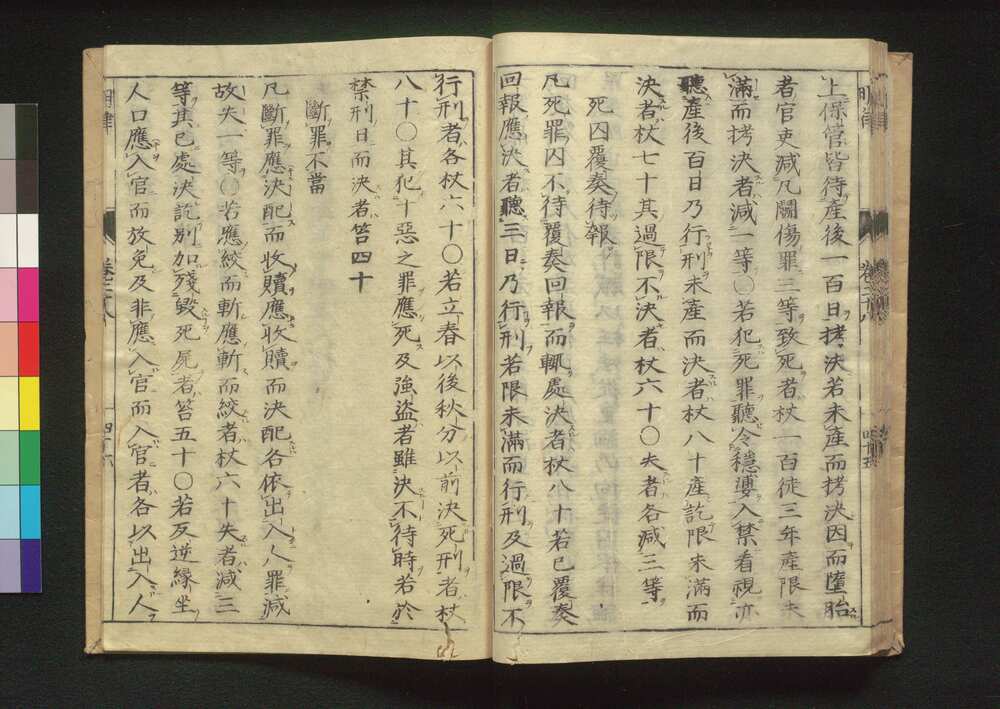 上保管皆待產後一百日拷決若未產而拷決因而墮胎
者官吏減凡鬬傷罪三等致死者杖一百徒三年產限未
滿而拷決者減一等〇若犯死罪聽令穩婆入禁看視亦
聽產後百日乃行刑未產而決者杖八十產訖限未滿而
決者杖七十其過限不決者杖六十〇失者各減三等
死囚覆奏待報
凡死罪囚不待覆奏回報而輒處決者杖八十若已覆奏
回報應決者聽三日乃行刑若限未滿而行刑及過限不
行刑者各杖六十〇若立春以後秋分以前決死刑者杖
八十〇其犯十惡之罪應死及強盗者雖決不待時若於
禁刑日而決者笞四十
斷罪不當
凡斷罪應決配而收贖應收贖而決配各依出入人罪減
故失一等〇若應絞而斬應斬而絞者杖六十失者減三
等其已處決訖別加殘毀死屍者笞五十〇若反逆緣坐
人口應入官而放免及非應入官而入官者各以出入人
明律
四十六